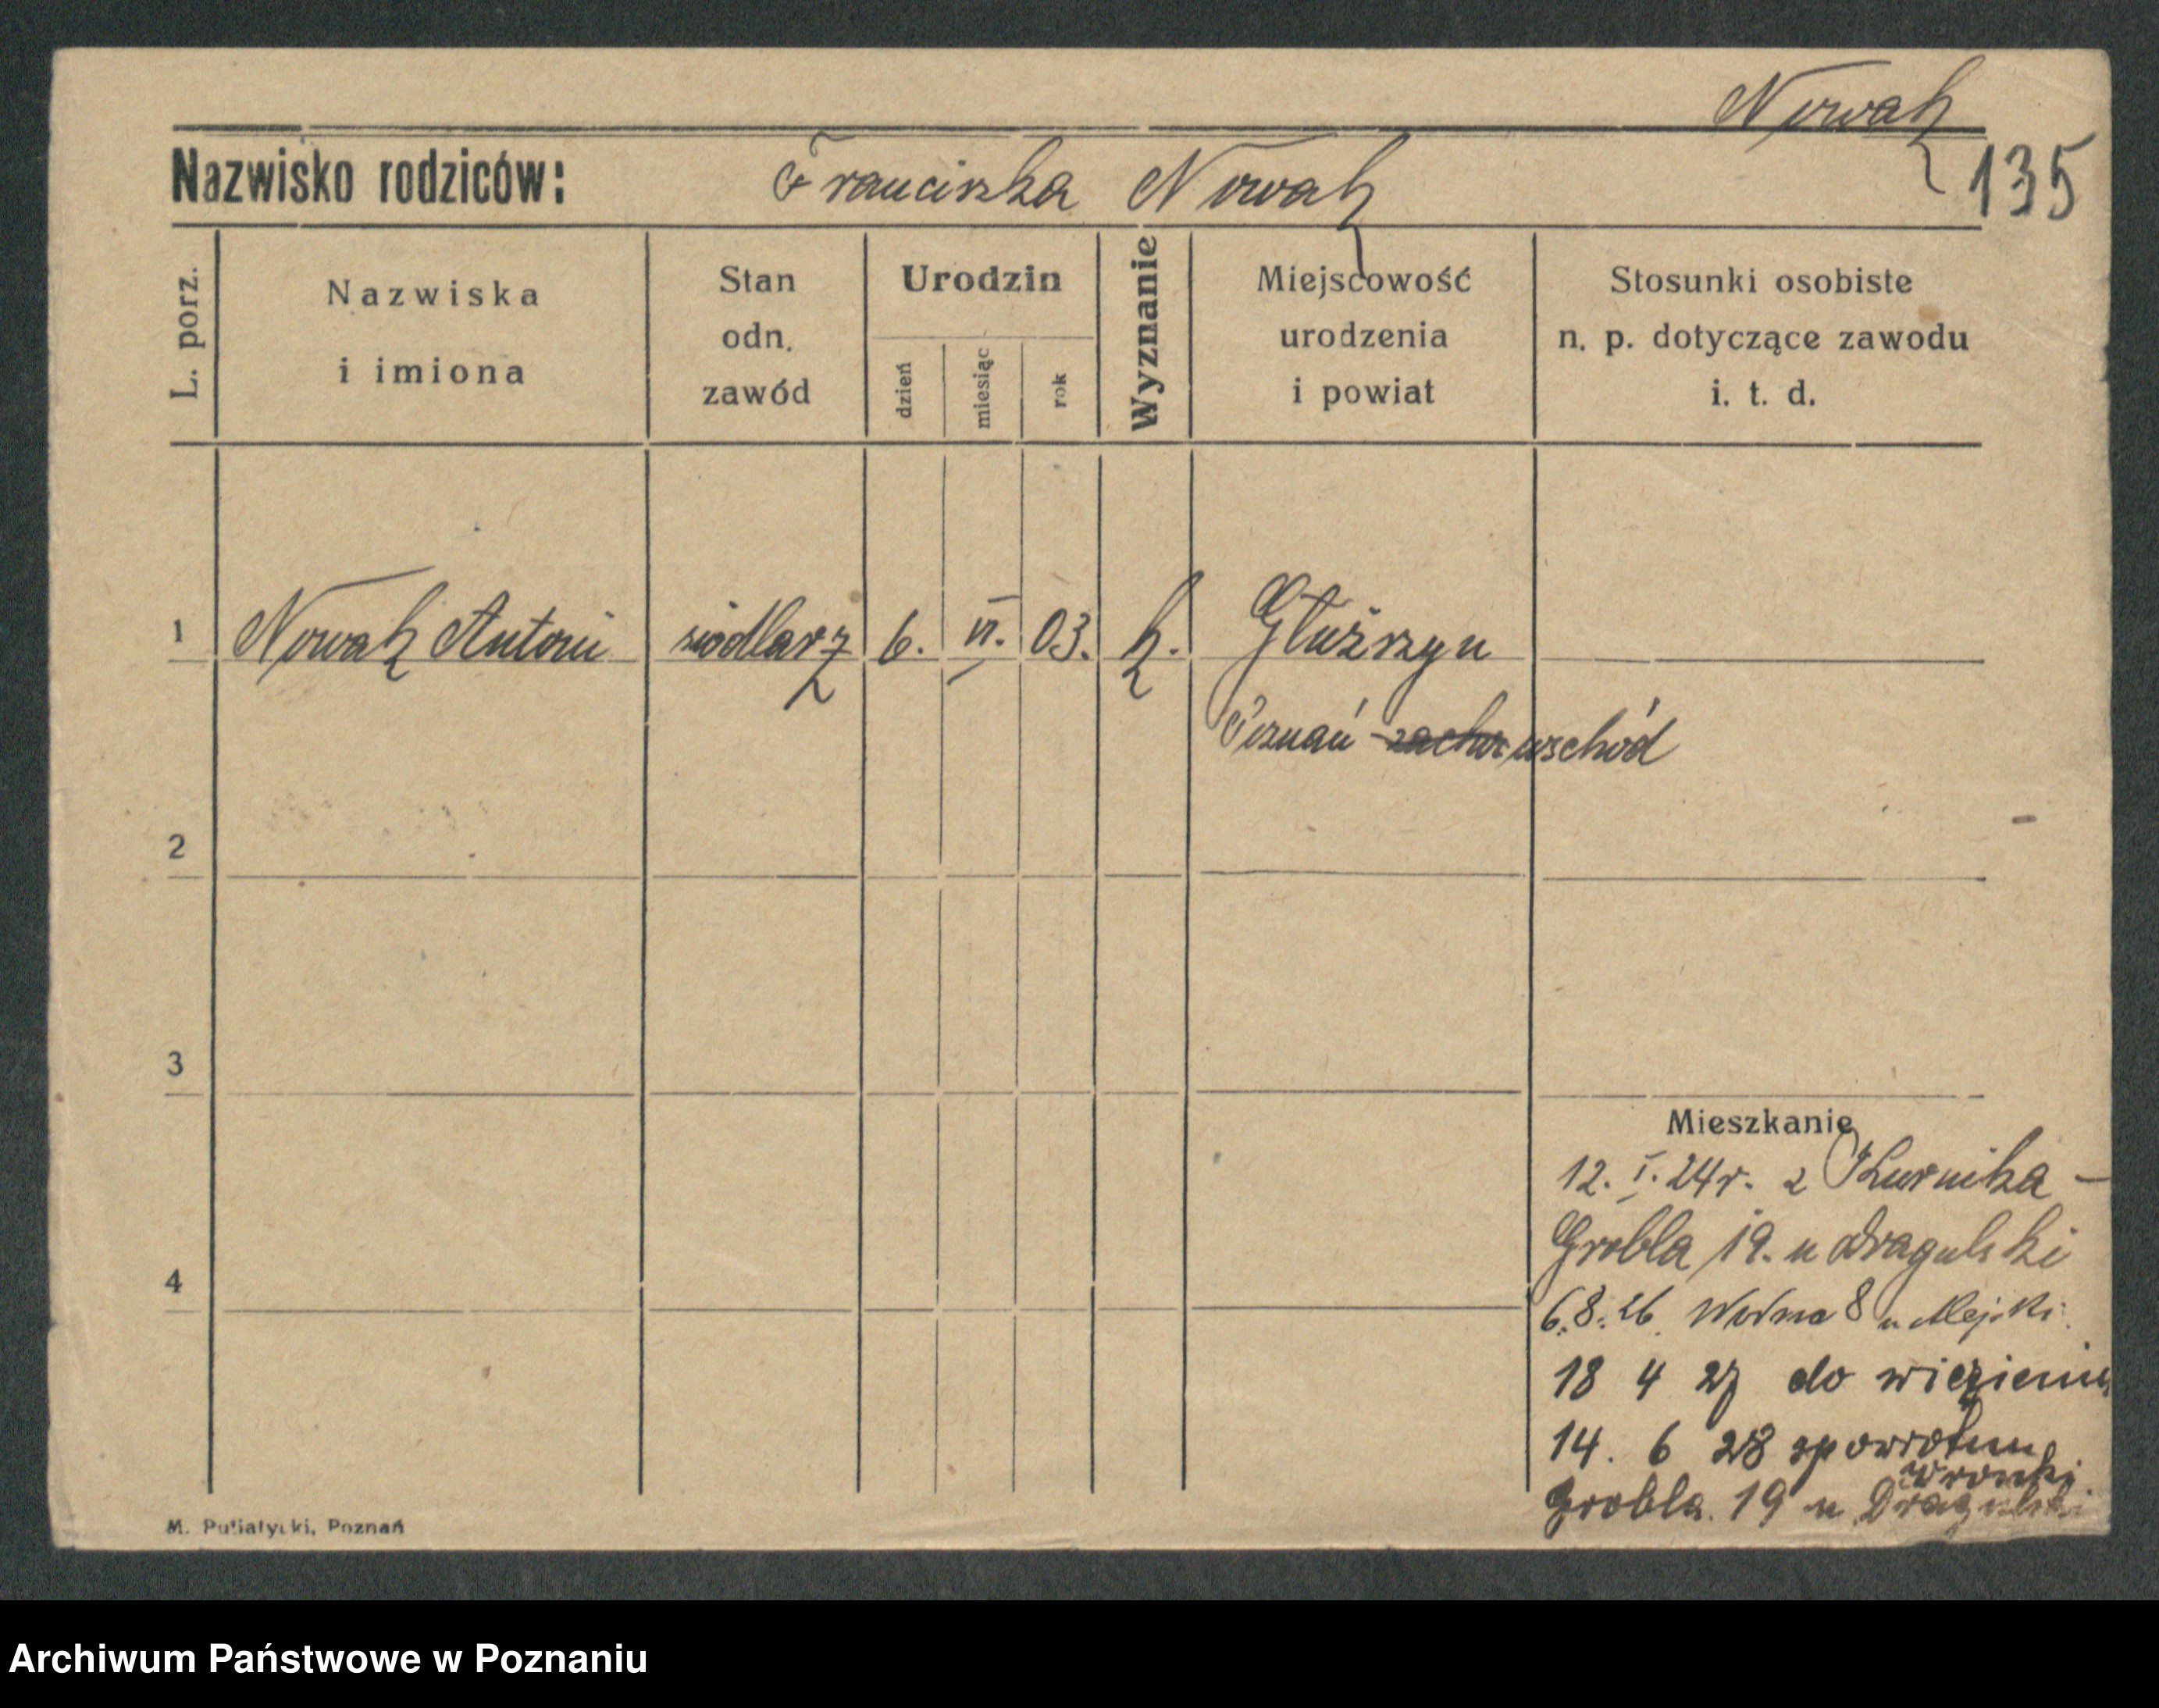 Nowak
Nazwisko rodziców: Franciszka Nowak 135
L. porz.
Nazwiska i imiona
Stan odn. zawód
Urodzin
dzień miesiąc rok
Wyznanie
Miejscowość urodzenia i powiat
Stosunki osobiste n. p. dotyczące zawodu i. t. d.
1 Nowak Antoni siodlarz 6. VI. 03. k. Głuszyn
Poznań - wschód
2
3
Mieszkanie
12. I. 24 r. z Kurnika -
Grobla 19. u Dragulski
4
6.8.26. Woźna 8 u
18 4 27 do więzienia
14. 6 28 spowrotem
Wronki
Grobla. 19 u Dragulski
M. Putiatycki, Poznań
Archiwum Państwowe w Poznaniu